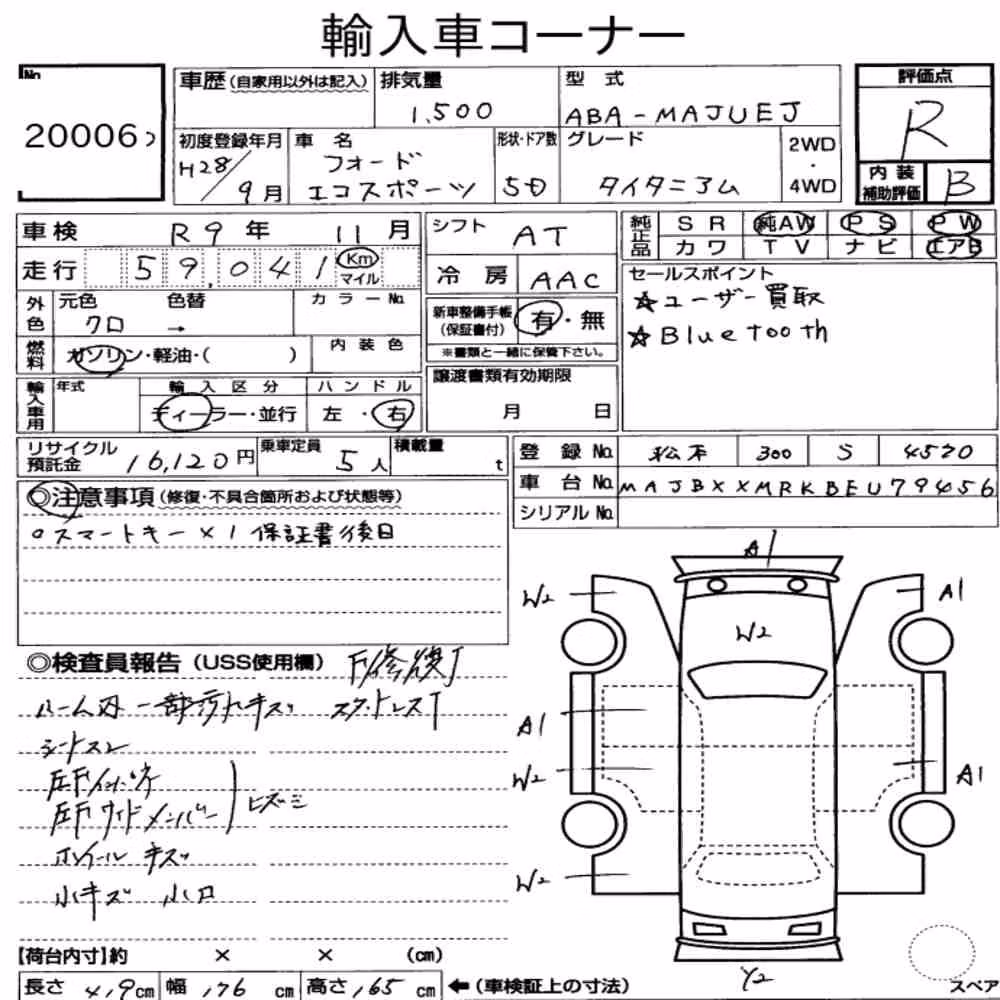 輸入車コーナー
No.
20006
車歴(自家用以外は記入) 排気量 型式 評価点
1,500 ABA-MAJUEJ R
初度登録年月 車名 形状・ドア数 グレード 2WD・4WD
H28/9月 フォード エコスポーツ 5D タイタニアム
内装補助評価 B
車検 R9年 11月 シフト AT
走行 59,041 Km マイル 冷房 AAC
純正品 SR 純AW PS PW
カワ TV ナビ エアB
外色 元色 色替 カラーNo.
クロ →
燃料 ガソリン・軽油・( ) 内装色
新車整備手帳(保証書付) 有・無
※書類と一緒に保管下さい。
セールスポイント
☆ユーザー買取
☆Bluetooth
輸入車用 年式 輸入区分 ハンドル
ディーラー・並行 左・右
譲渡書類有効期限
月 日
リサイクル預託金 16,120円 乗車定員 5人 積載量 t
登録No. 松本 300 S 4570
車台No. MAJBXXMRKBEU79456
シリアルNo.
◎注意事項(修復・不具合箇所および状態等)
○スマートキー×1 保証書後日
◎検査員報告(USS使用欄) 「修復」
ルーム内一部汚れキズ
左Fインサイド
左Fサイドメンバー
ホイールキズ
小キズ 小凹
A1
W2 A1
W2
A1
W2 A1
W2
Y2
【荷台内寸】約 × × (cm)
長さ 419cm 幅 176cm 高さ 165cm ←(車検証上の寸法)
スペア